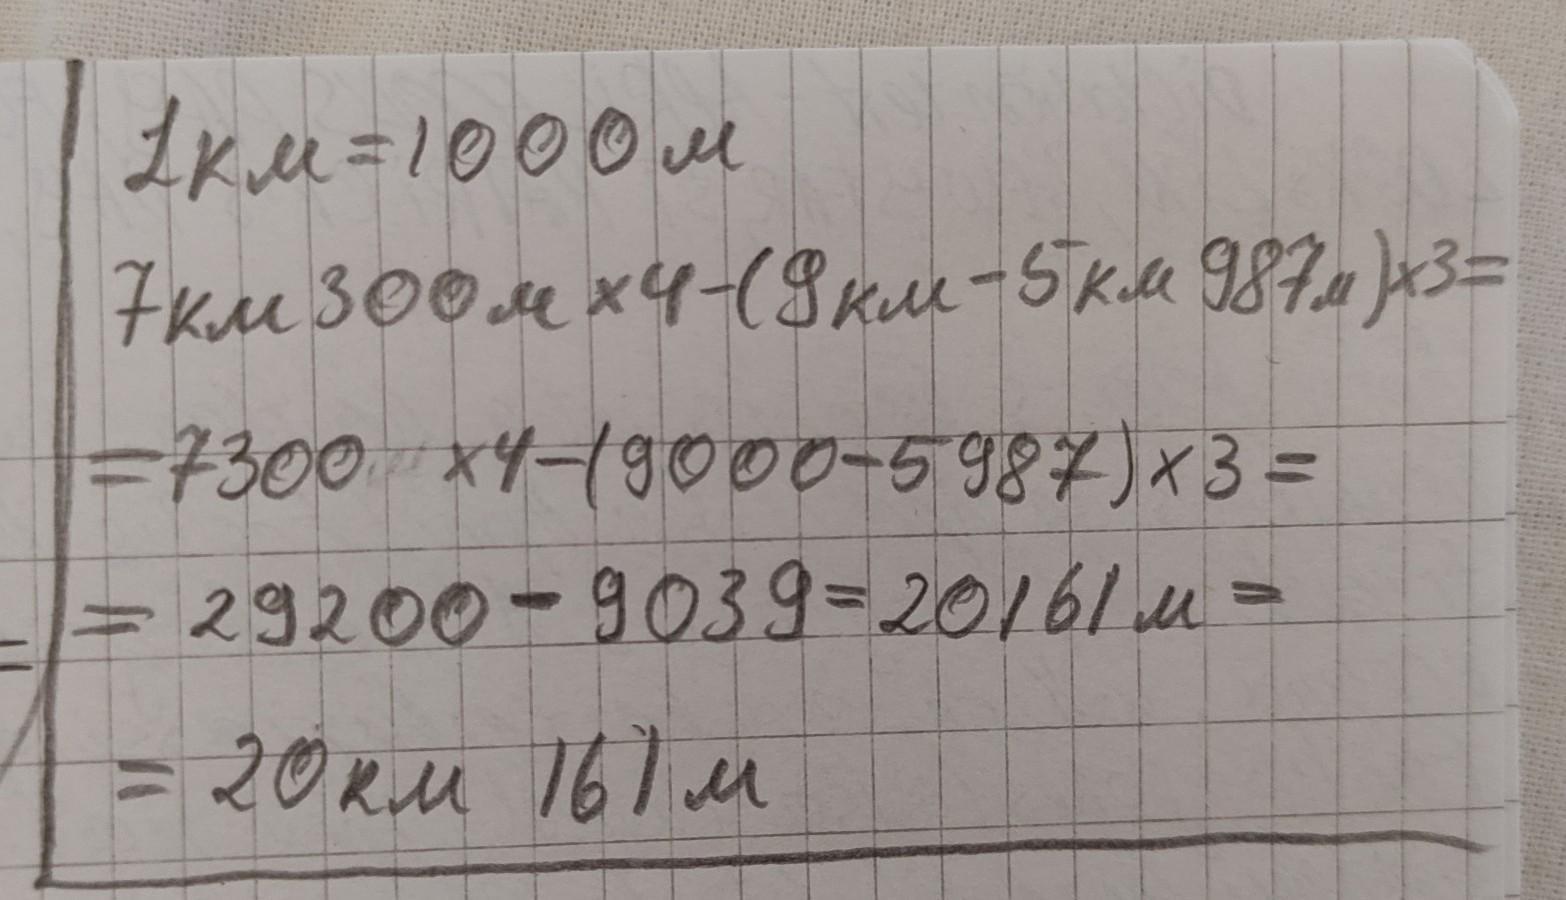 1км=1000м
7км300м×4-(9км-5км 987м)×3=
=7300 ×4-(9000-5987)×3=
= 29200-9039=20161м=
= 20км 161м